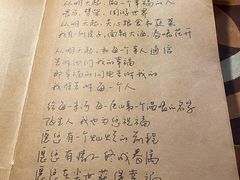 从明天起，做一个幸福的人
喂马、劈柴，周游世界
从明天起，关心粮食和蔬菜
我有一所房子，面朝大海，春暖花开
从明天起，和每一个亲人通信
告诉他们我的幸福
那幸福的闪电告诉我的
我将告诉每一个人
给每一条河每一座山取一个温暖的名字
陌生人，我也为你祝福
愿你有一个灿烂的前程
愿你有情人终成眷属
愿你在尘世获得幸福